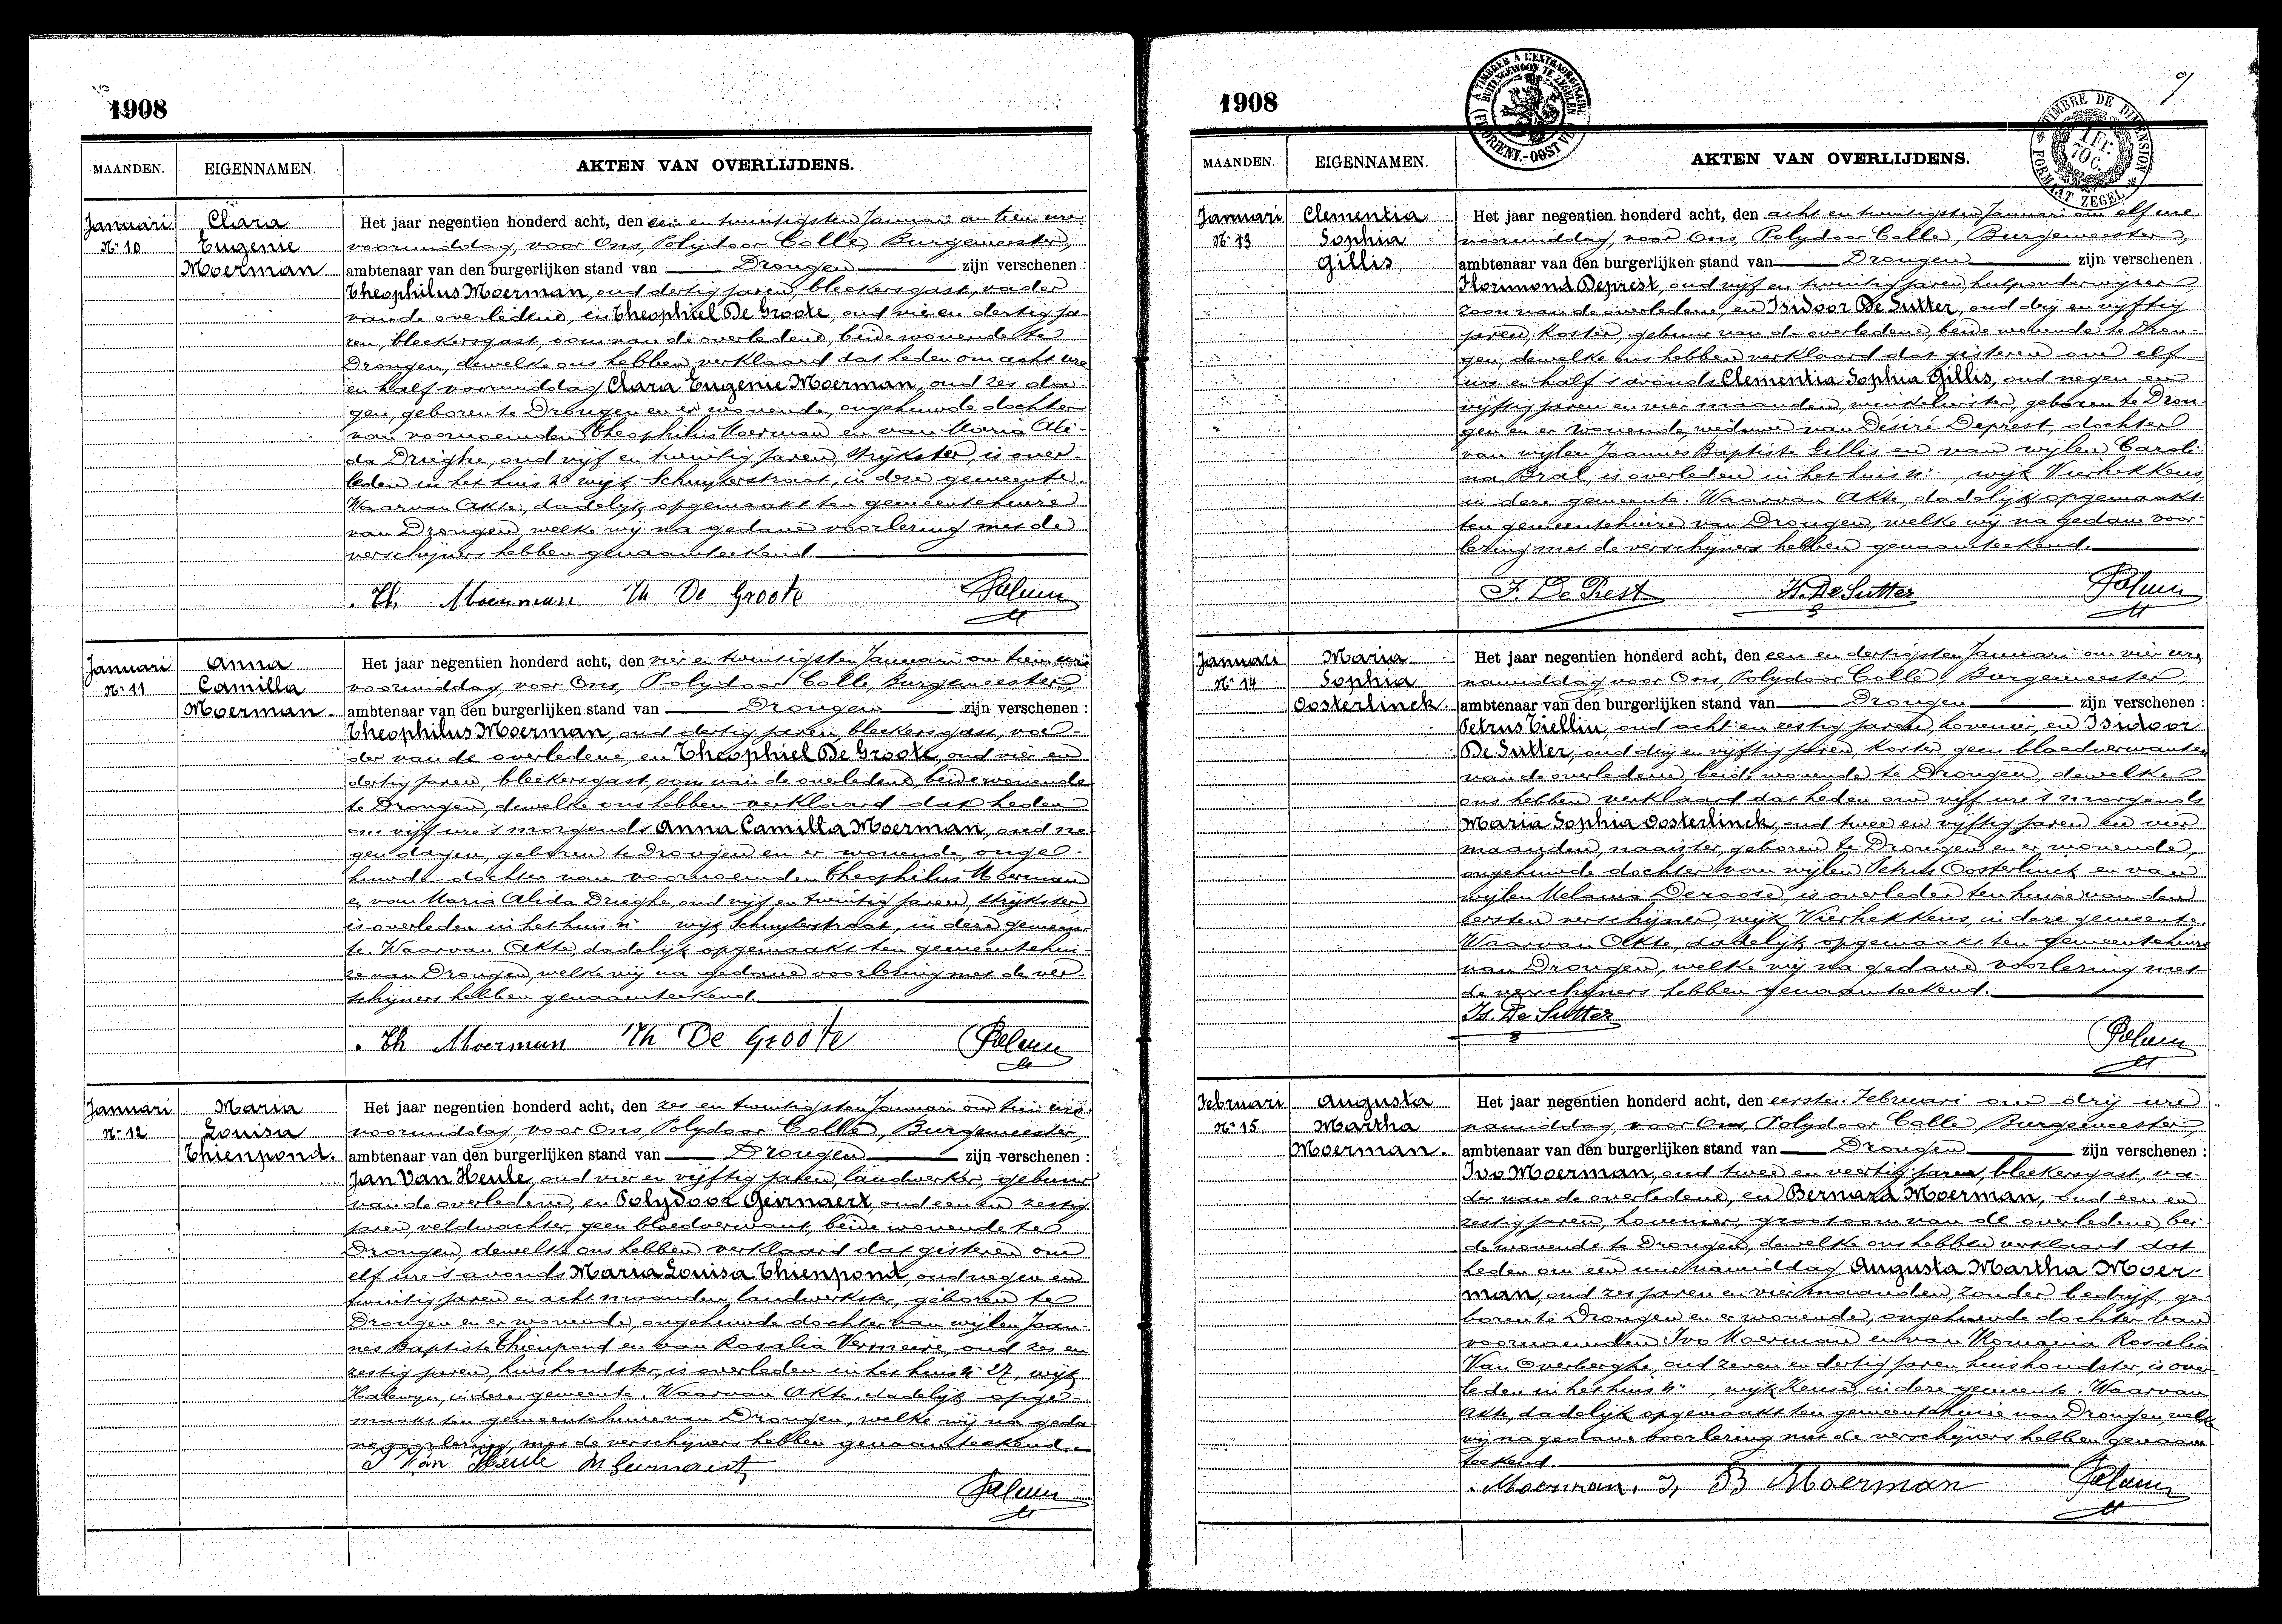 1908
MAANDEN. EIGENNAMEN. AKTEN VAN OVERLIJDENS.
Januari
Nr 10
Clara
Eugenie
Moerman
Het jaar negentien honderd acht, den een en twintigsten Januari om tien ure
voormiddag, voor Ons, Polydoor Colle, Burgemeester,
ambtenaar van den burgerlijken stand van Drongen zijn verschenen :
Theophilus Moerman, oud dertig jaren, bleekersgast, vader
van de overledene, en Theophiel De Groote, oud vier en dertig ja-
ren, bleekersgast, oom van de overledene, beide wonende te
Drongen, dewelke ons hebben verklaard dat heden om acht ure
en half voormiddag Clara Eugenie Moerman, oud zes da-
gen, geboren te Drongen en er wonende, ongehuwde dochter
van voornoemden Theophilus Moerman en van Maria Ali-
da Drieghe, oud vijf en twintig jaren, strijkster, is over-
leden in het huis Nr wijk Schuyterstraat, in deze gemeente.
Waarvan Akte, dadelijk opgemaakt ten gemeentehuize
van Drongen, welke wij na gedane voorlezing met de
verschijners hebben genaamteekend.
Th. Moerman Th De Groote
Januari
Nr 11
Anna
Camilla
Moerman.
Het jaar negentien honderd acht, den vier en twintigsten Januari om tien ure
voormiddag, voor Ons, Polydoor Colle, Burgemeester,
ambtenaar van den burgerlijken stand van Drongen zijn verschenen :
Theophilus Moerman, oud dertig jaren, bleekersgast, va-
der van de overledene, en Theophiel De Groote, oud vier en
dertig jaren, bleekersgast, oom van de overledene, beide wonende
te Drongen, dewelke ons hebben verklaard dat heden
om vijf ure 's morgends Anna Camilla Moerman, oud ne-
gen dagen, geboren te Drongen en er wonende, onge-
huwde dochter van voornoemden Theophilus Moerman
en van Maria Alida Drieghe, oud vijf en twintig jaren, strijkster,
is overleden in het huis Nr wijk Schuyterstraat, in deze gemeen-
te. Waarvan Akte, dadelijk opgemaakt ten gemeentehui-
ze van Drongen, welke wij na gedane voorlezing met de ver-
schijners hebben genaamteekend.
Th Moerman Th De Groote
Januari
Nr 12
Maria
Louisa
Thienpond.
Het jaar negentien honderd acht, den zes en twintigsten Januari om tien ure
voormiddag, voor Ons, Polydoor Colle, Burgemeester,
ambtenaar van den burgerlijken stand van Drongen zijn verschenen :
Jan Van Heule, oud vier en vijftig jaren, landwerker, gebuur
van de overledene, en Polydoor Geirnaert, oud een en zestig
jaren, veldwachter, geen bloedverwant, beide wonende te
Drongen, dewelke ons hebben verklaard dat gisteren om
elf ure 's avonds Maria Louisa Thienpond, oud negen en
twintig jaren en acht maanden, landwerkster, geboren te
Drongen en er wonende, ongehuwde dochter van wijlen Joan-
nes Baptiste Thienpond en van Rosalia Vermeire, oud zes en
zestig jaren, huishoudster, is overleden in het huis Nr 27, wijk
Halewyn, in deze gemeente. Waarvan Akte, dadelijk opge-
maakt ten gemeentehuize van Drongen, welke wij na geda-
ne voorlezing, met de verschijners hebben genaamteekend.
J Van Heule
1908
A TIMBRER À L'EXTRAORDINAIRE
BUITENGEWOON TE ZEGELEN
FL. ORIENT.-OOST VL.
TIMBRE DE DIMENSION
1 Fr. 70 C.
FORMAAT ZEGEL
MAANDEN. EIGENNAMEN. AKTEN VAN OVERLIJDENS.
Januari
Nr 13
Clementia
Sophia
Gillis
Het jaar negentien honderd acht, den acht en twintigsten Januari om elf ure
voormiddag, voor Ons, Polydoor Colle, Burgemeester,
ambtenaar van den burgerlijken stand van Drongen zijn verschenen
Florimond Deprest, oud vijf en twintig jaren, hulponderwijzer
zoon van de overledene, en Isidoor De Sutter, oud drij en vijftig
jaren, koster, gebuur van de overledene, beide wonende te Dron-
gen, dewelke ons hebben verklaard dat gisteren om elf
ure en half 's avonds Clementia Sophia Gillis, oud negen en
vijftig jaren en vier maanden, winkelierster, geboren te Dron-
gen en er wonende, weduwe van Désiré Deprest, dochter
van wijlen Joannes Baptiste Gillis en van wijlen Caroli-
na Bral, is overleden in het huis Nr , wijk Vierhekkens,
in deze gemeente. Waarvan Akte, dadelijk opgemaakt
ten gemeentehuize van Drongen, welke wij na gedane voor-
lezing met de verschijners hebben genaamteekend.
F. De Prest Is. De Sutter
Januari
Nr 14
Maria
Sophia
Oosterlinck.
Het jaar negentien honderd acht, den een en dertigsten Januari om vier ure
namiddag voor Ons, Polydoor Colle, Burgemeester
ambtenaar van den burgerlijken stand van Drongen zijn verschenen :
Petrus Tiellin, oud acht en zestig jaren, hovenier, en Isidoor
De Sutter, oud drij en vijftig jaren, koster, geen bloedverwanten
van de overledene, beide wonende te Drongen, dewelke
ons hebben verklaard dat heden om vijf ure 's morgends
Maria Sophia Oosterlinck, oud twee en vijftig jaren en vier
maanden, naaister, geboren te Drongen en er wonende,
ongehuwde dochter van wijlen Petrus Oosterlinck en van
wijlen Melania Deroose, is overleden ten huize van den
eersten verschijner, wijk Vierhekkens, in deze gemeente.
Waarvan Akte, dadelijk opgemaakt ten gemeentehuize
van Drongen, welke wij na gedane voorlezing met
de verschijners hebben genaamteekend.
Is. De Sutter
Februari
Nr 15
Augusta
Martha
Moerman.
Het jaar negentien honderd acht, den eersten Februari om drij ure
namiddag, voor Ons, Polydoor Colle, Burgemeester,
ambtenaar van den burgerlijken stand van Drongen zijn verschenen :
Ivo Moerman, oud twee en veertig jaren, bleekersgast, va-
der van de overledene, en Bernard Moerman, oud een en
zestig jaren, hovenier, grootoom van de overledene, bei-
de wonende te Drongen, dewelke ons hebben verklaard dat
heden om een ure namiddag Augusta Martha Moer-
man, oud zes jaren en vier maanden, zonder bedrijf, ge-
boren te Drongen en er wonende, ongehuwde dochter van
voornoemden Ivo Moerman en van Romania Rosalia
Van Overberghe, oud zeven en dertig jaren, huishoudster, is over-
leden in het huis Nr , wijk Keuze, in deze gemeente. Waarvan
Akte, dadelijk opgemaakt ten gemeentehuize van Drongen, welke
wij na gedane voorlezing met de verschijners hebben genaam-
teekend.
Moerman. I, B Moerman